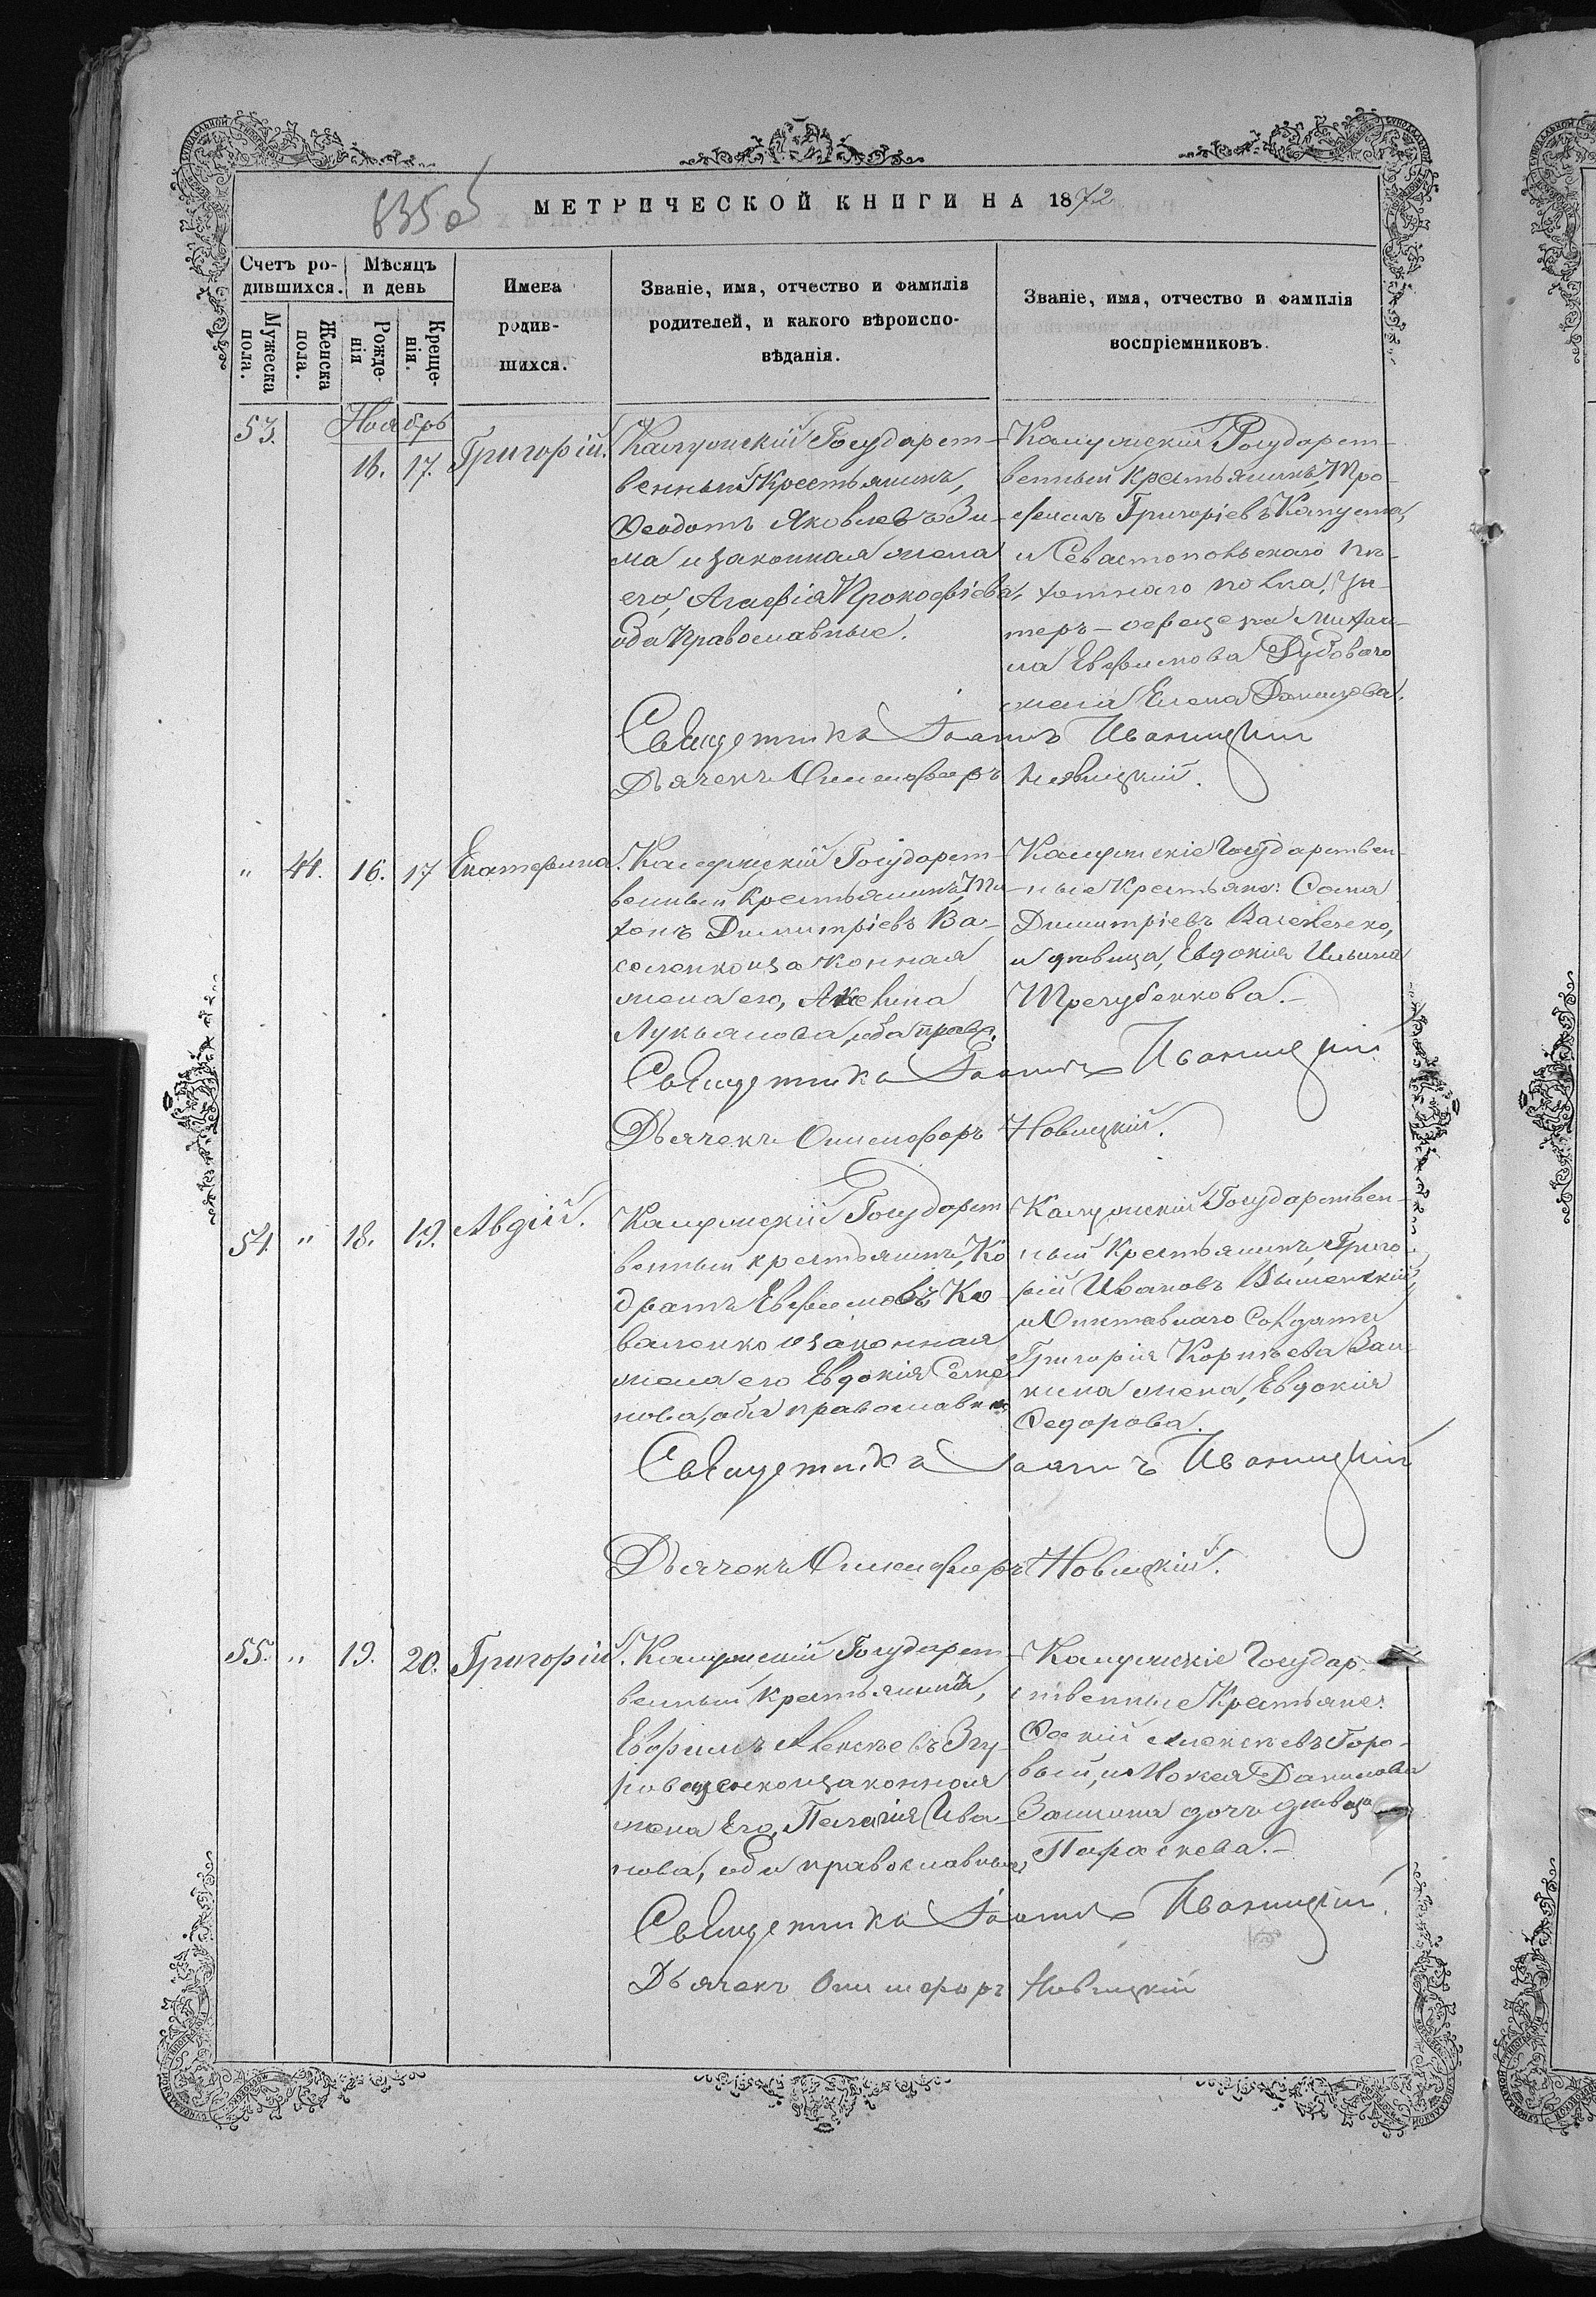 635 об
МЕТРИЧЕСКОЙ КНИГИ НА 1872
Счетъ ро-
дившихся.
Мужеска
пола.
Женска
пола.
Мѣсяцъ
и день
Рожде-
нія
Креще-
нія.
Имена
родив-
шихся.
Званіе, имя, отчество и фамилія
родителей, и какого вѣроиспо-
вѣданія.
Званіе, имя, отчество и фамилія
воспріемниковъ.
Ноябрь
53. 16. 17. Григорій.
Государст-
венный Крестьянинъ,
Ѳеодотъ Яковлевъ Зи-
ма и законная жена
его, Агафія Прокофіева,
оба Православные.
Государст-
венный Крестьянинъ, Тро-
фимъ Григоріевъ Капуста,
и Севастопольскаго пѣ-
хотнаго полка, Ун-
теръ-офицера Михаи-
ла Евфимова
жена Елена Данилова.
Священникъ Іоаннъ Иваницкій
Дьячекъ Онисифоръ Новицкій.
" 44. 16. 17 Екатерина.
Государст-
венный Крестьянинъ, Ти-
хонъ Димитріевъ Ва-
силенко и законная
жена его, Акелина
Лукьянова, оба правос.
Государствен-
ные Крестьяне:
Димитріевъ Василенко,
и дѣвица, Евдокія Ильина
Трегубенкова.-
Священникъ Іоаннъ Иваницкій
Дьячекъ Онисифоръ Новицкій.
54. " 18. 19. Авдій.
Государст
венный крестьянинъ, Ко
дратъ Евфимовъ Ко
валенко и законная
жена его Евдокія Семе
нова, оба православн.
Государствен-
ный Крестьянинъ, Григо
рій Ивановъ
и Отставнаго Солдата
Григорія Корнѣева
жена, Евдокія
Ѳедорова.
Священникъ Іоаннъ Иваницкій
Дьячекъ Онисифоръ Новицкій.
55. " 19. 20. Григорій.
Государст-
венный Крестьянинъ,
Евфимъ Алексѣевъ Згу-
ровщенко и законная
жена Его, Пелагія Ива-
нова, оба православные,
Государ-
ственные Крестьяне:
Алексѣевъ Горо-
вый, и Мокея Данилова
дочь дѣвица
Параскева.-
Священникъ Іоаннъ Иваницкій.
Дьячекъ Онисифоръ Новицкій